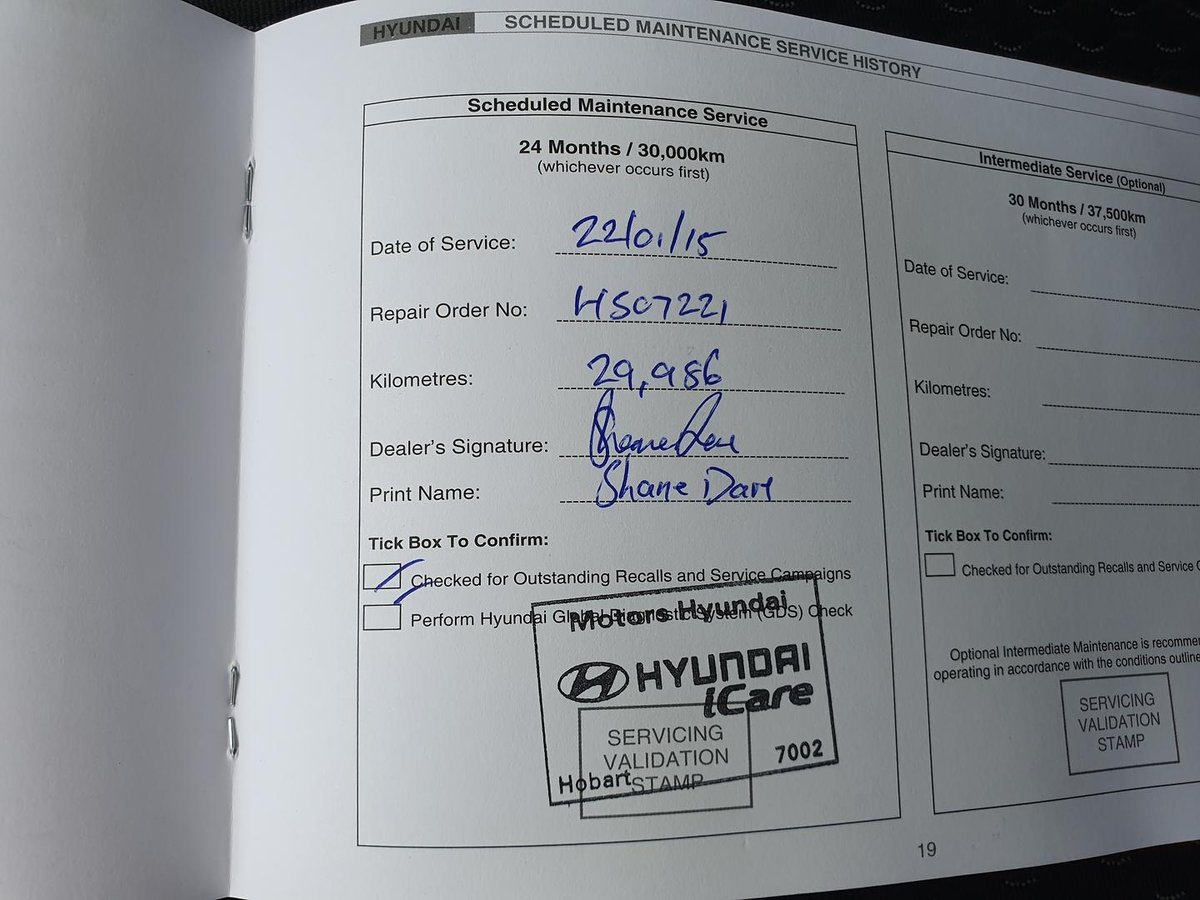 HYUNDAI SCHEDULED MAINTENANCE SERVICE HISTORY
Scheduled Maintenance Service
24 Months / 30,000km
(whichever occurs first)
Date of Service: 22/01/15
Repair Order No: HS07221
Kilometres: 29,986
Dealer's Signature:
Print Name: Shane Dare
Tick Box To Confirm:
Checked for Outstanding Recalls and Service Campaigns
Perform Hyundai Global Diagnostic System (GDS) Check
Motors Hyundai
HYUNDAI
iCare
SERVICING
VALIDATION
STAMP
Hobart 7002
Intermediate Service (Optional)
30 Months / 37,500km
(whichever occurs first)
Date of Service:
Repair Order No:
Kilometres:
Dealer's Signature:
Print Name:
Tick Box To Confirm:
Checked for Outstanding Recalls and Service
Optional Intermediate Maintenance is
operating in accordance with the conditions
SERVICING
VALIDATION
STAMP
19